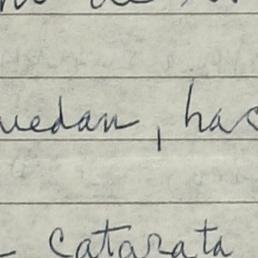 uedan, has
catarata